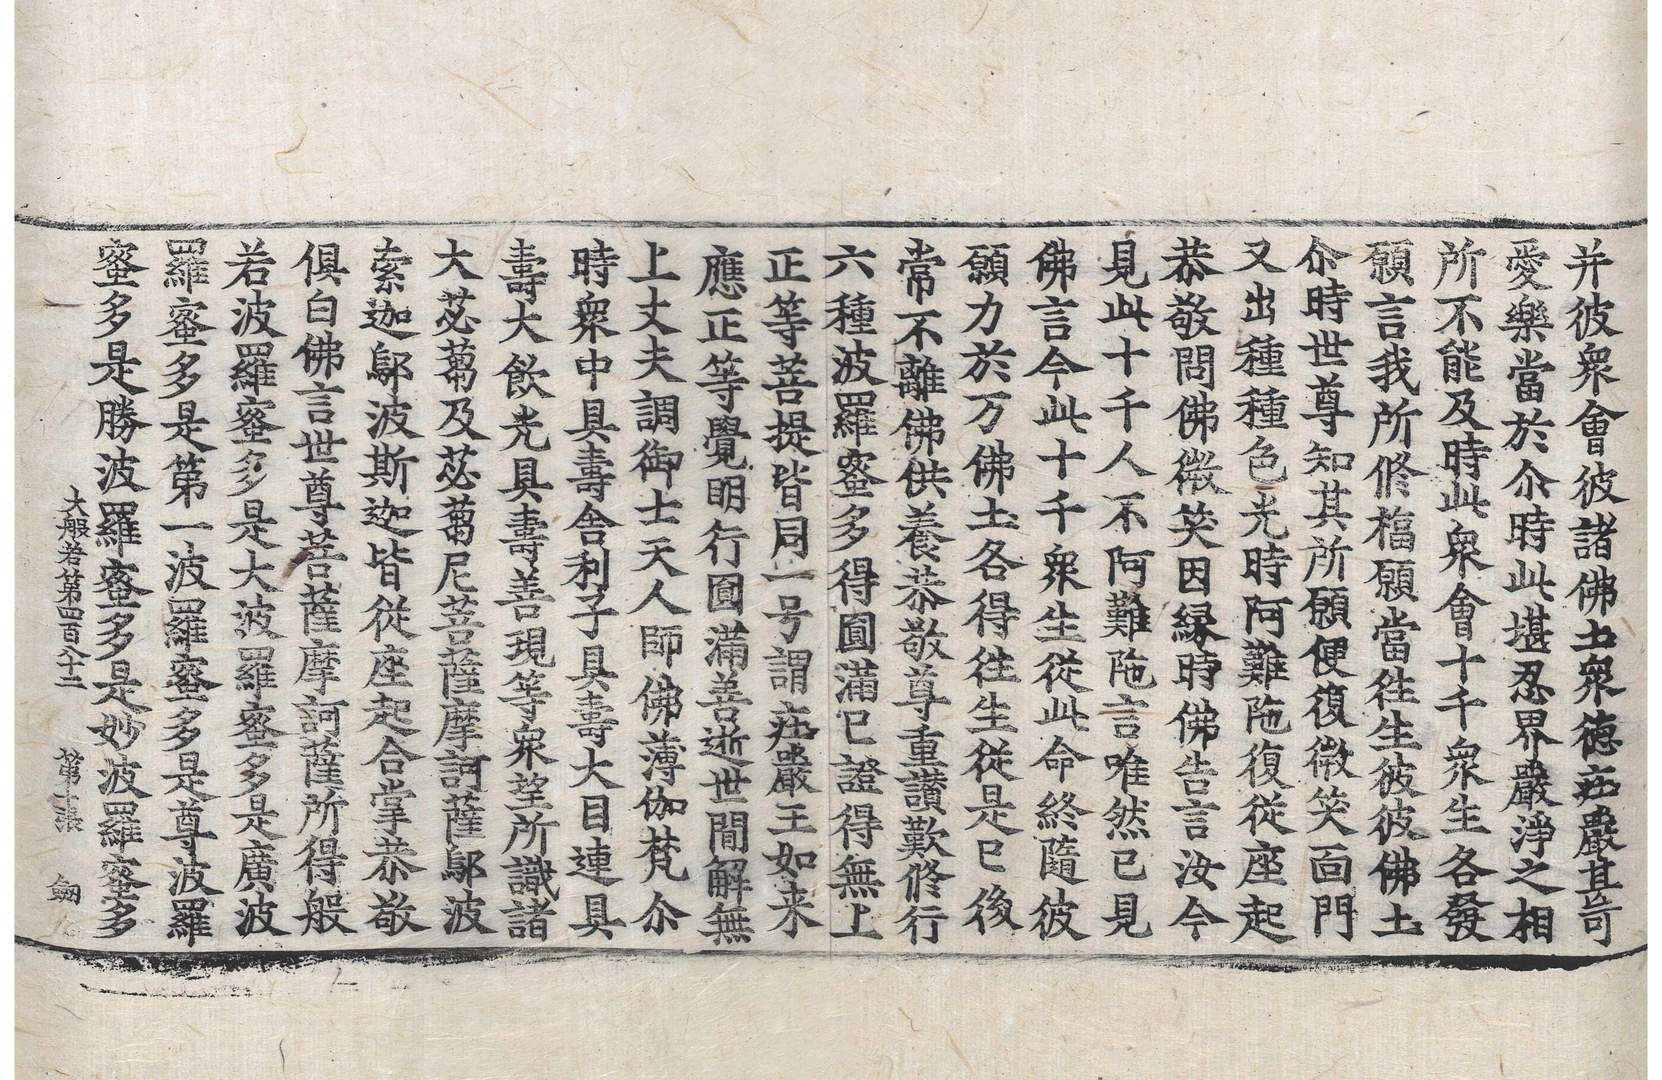 并彼衆會彼諸佛土衆德莊嚴甚可
愛樂當於尒時此堪忍界嚴淨之相
所不能及時此衆會十千衆生各發
願言我所修福願當往生彼彼佛土
尒時世尊知其所願便復微笑面門
又出種種色光時阿難陁復從座起
恭敬問佛微笑因緣時佛告言汝今
見此十千人不阿難陁言唯然已見
佛言今此十千衆生從此命終隨彼
願力於万佛土各得往生從是已後
常不離佛供養恭敬尊重讚歎修行
六種波羅蜜多得圓滿已證得無上
正等菩提皆同一号謂莊嚴王如来
應正等覺明行圓滿善逝世間解無
上丈夫調御士天人師佛薄伽梵尒
時衆中具壽舍利子具壽大目連具
壽大飲光具壽善現等衆望所識諸
大苾蒭及苾蒭尼菩薩摩訶薩鄔波
索迦鄔波斯迦皆從座起合掌恭敬
俱白佛言世尊菩薩摩訶薩所得般
若波羅蜜多是大波羅蜜多是廣波
羅蜜多是第一波羅蜜多是尊波羅
蜜多是勝波羅蜜多是妙波羅蜜多
大般若第四百八十二 第十張 劒